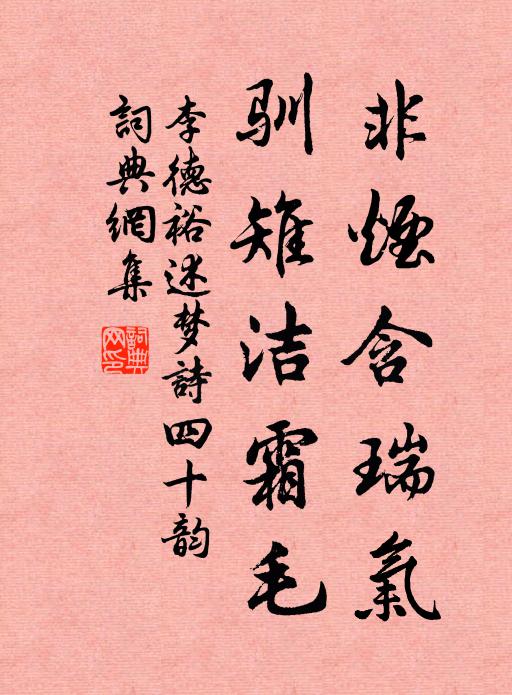 非煙含瑞氣
驯雉洁霜毛
李德裕述梦詩四十韵
詞典網集
詞典网印